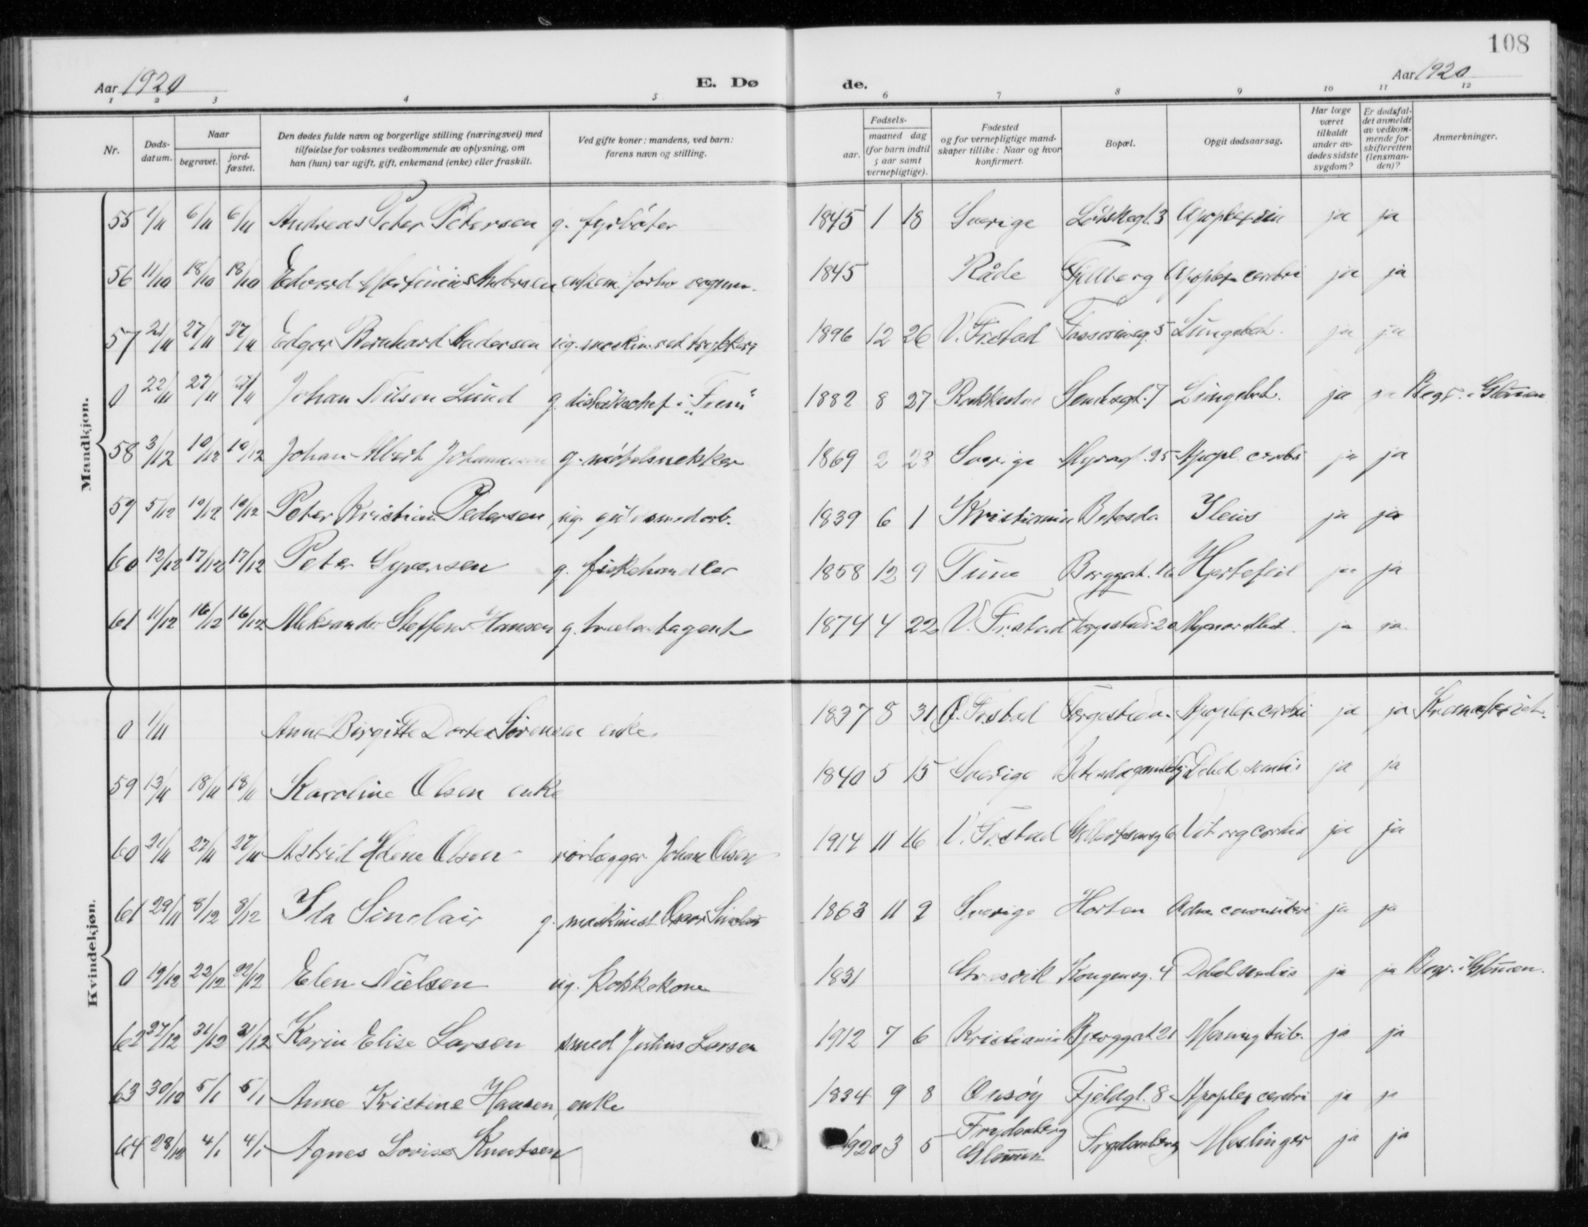 108
Aar 1920
E. Dø
de.
Aar 1920
1 2 3 4 5 6 7 8 9 10 11 12
Nr.
Døds-
datum.
Naar
begravet.
jord-
fæstet.
Den dødes fulde navn og borgerlige stilling (næringsvei) med
tilføielse for voksnes vedkommende av oplysning, om
han (hun) var ugift, gift, enkemand (enke) eller fraskilt.
Ved gifte koner: mandens, ved barn:
farens navn og stilling.
Fødsels-
aar.
maaned dag
(for barn indtil
5 aar samt
vernepligtige).
Fødested
og for vernepligtige mand-
skaper tillike: Naar og hvor
konfirmert.
Bopæl.
Opgit dødsaarsag.
Har læge
været
tilkaldt
under av-
dødes sidste
sygdom?
Er dødsfal-
det anmeldt
av vedkom-
mende for
skifteretten
(lensman-
den)?
Anmerkninger.
Mandkjøn.
55 1/11 6/11 6/11 Andreas Peter Petersen g. fyrbøter 1845 1 18 Sverige 3 Apoplexia ja ja
56 11/10 18/10 18/10 Edvard Martinius Andersen 1845 Råde Apoplex cerebri ja ja
57 21/11 27/11 27/11 Edgar Bernhard Andersen ug. 1896 12 26 V. Frstad 5 Lungebet. ja ja
0 22/11 27/11 27/11 Johan Nilsen Lund g. i "Frem" 1882 8 27 Rakkestad 7 Lungebet. ja ja Begr. i Glemmen
58 3/12 10/12 10/12 Johan Albert Johannesen g. møbelsnekker 1869 2 23 Sverige Apopl. cerebri ja ja
59 5/12 10/12 10/12 Peter Kristian Pedersen ug. 1839 6 1 Kristiania Betesda Ileus ja ja
60 12/12 17/12 17/12 Peter Syversen g. fiskehandler 1858 12 9 Tune Borggat. Hjertefeil ja ja
61 11/12 16/12 16/12 Aleksander Steffen Hansen g. trælastagent 1874 4 22 V. Frstad ja ja
Kvindekjøn.
0 1/11 Anne Birgitte Dortea Sørensen enke. 1837 8 31 Ø. Frstad Apoplex cerebri ja ja
59 13/11 18/11 18/11 Karoline Olsen enke 1840 5 15 Sverige Debil. senilis ja ja
60 21/11 27/11 27/11 Astrid Helene Olsen rørlægger Johan Olsen 1914 11 16 V. Frstad 6 Vit. org. cordis ja ja
61 29/11 8/12 8/12 Ida Sinclair g. maskinist Oscar Sinclair 1863 11 9 Sverige Horten ja ja
0 19/12 22/12 22/12 Elen Nielsen ug. kokkekone 1831 Gressvik Kongensg. 4 Debil. senilis ja ja Begr. i Glemmen.
62 27/12 31/12 31/12 Karin Elise Larsen smed Justins Larsen 1912 7 6 Kristiania Bjerggat. 21 Mening. tub. ja ja
63 30/12 5/1 5/1 Anne Kristine Hansen enke 1834 9 8 Onsøy Fjeldgt. 8 Apoplex cerebri ja ja
64 28/12 4/1 4/1 Agnes Lovise Knutsen 1920 3 5 Frydenberg Glemmen Frydenberg Meslinger ja ja